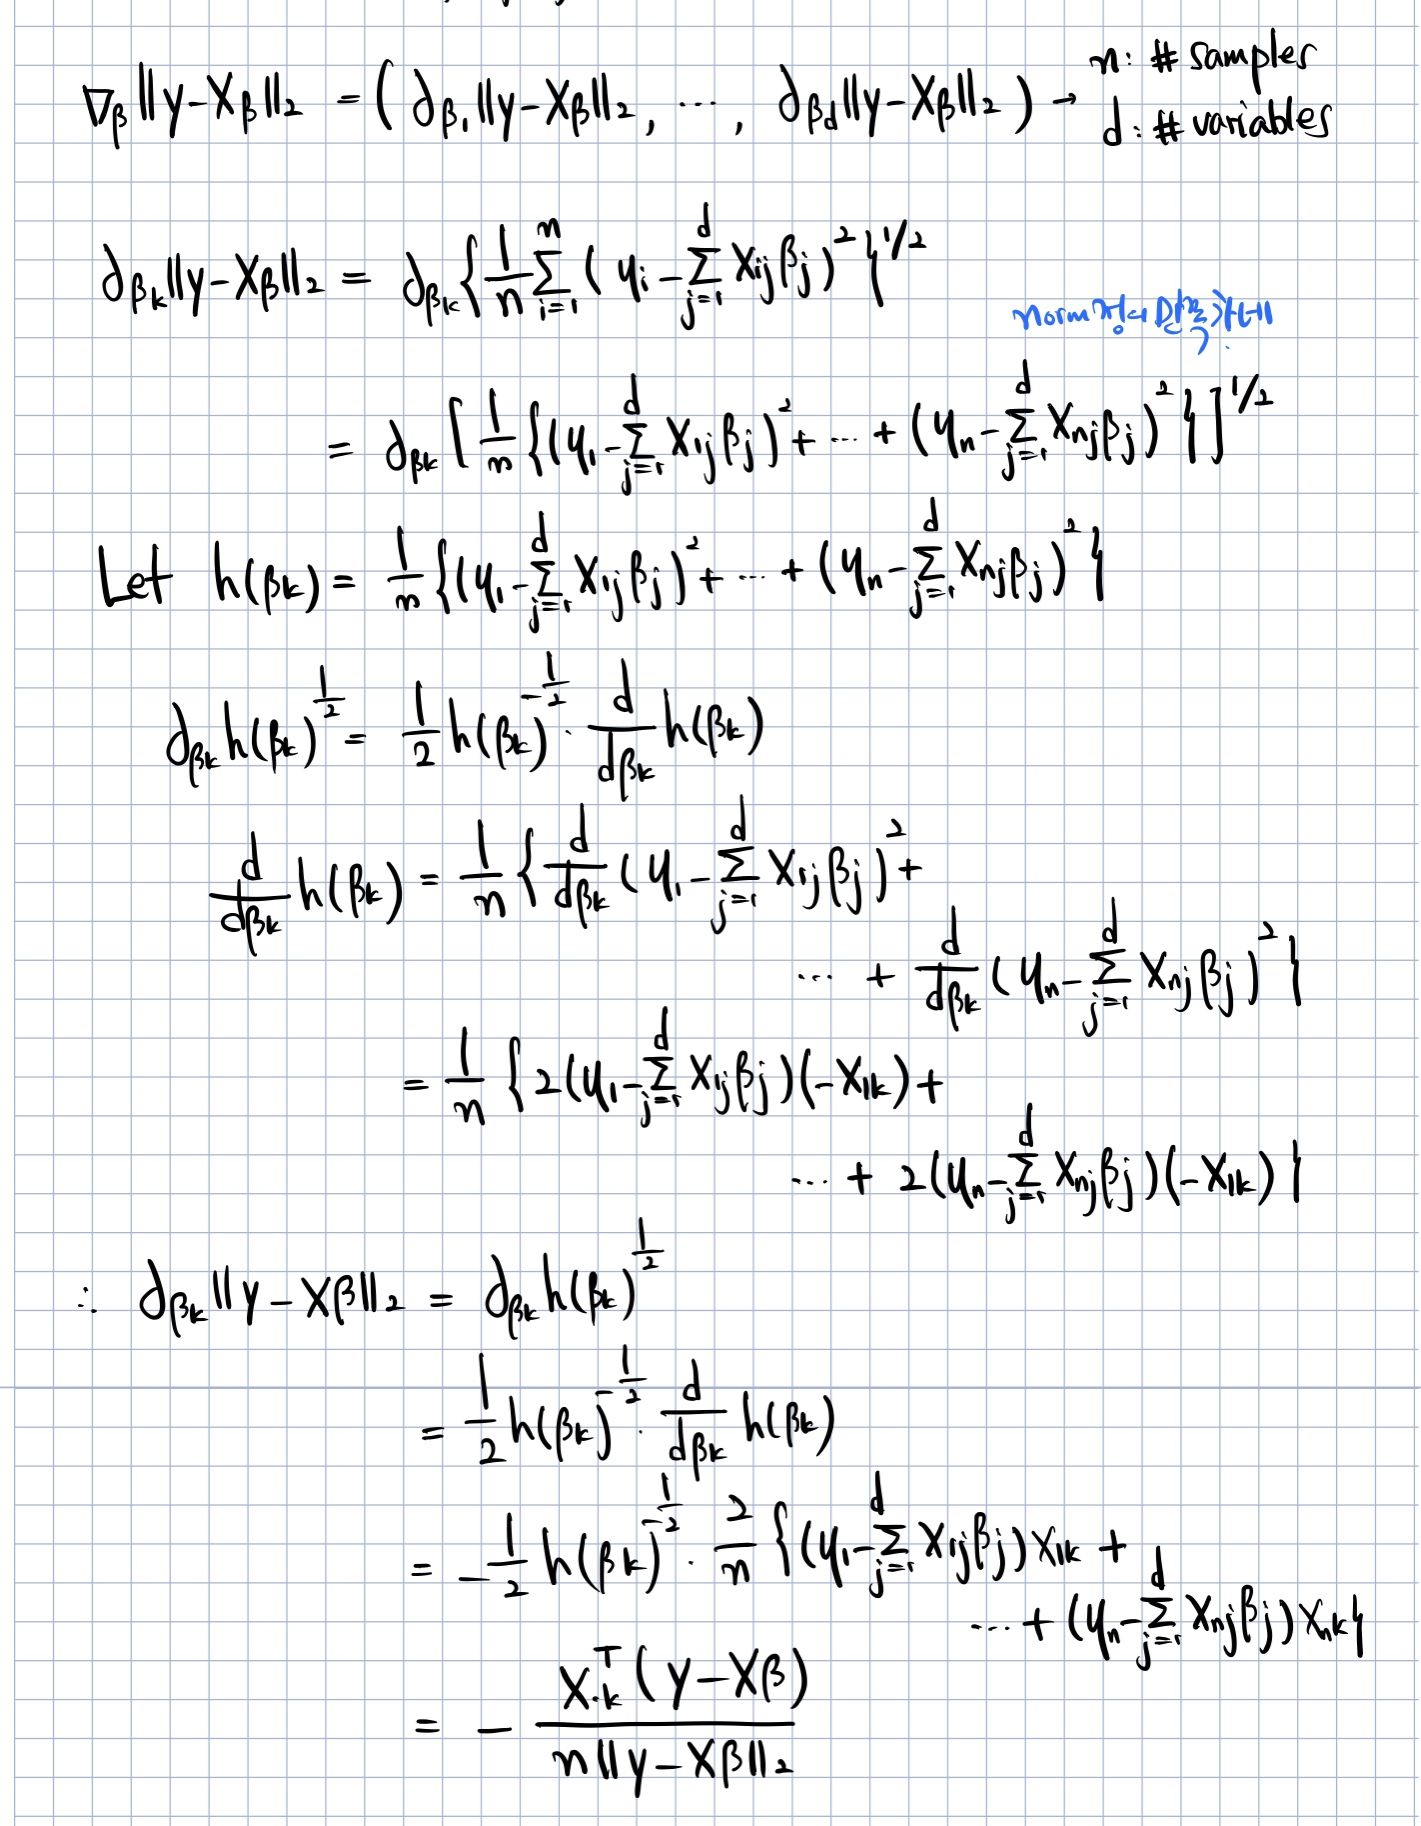 ∇_β ‖y-Xβ‖₂ = ( ∂_β₁‖y-Xβ‖₂, ..., ∂_β_d‖y-Xβ‖₂ ) → n: # samples
d: # variables
∂_β_k‖y-Xβ‖₂ = ∂_β_k { 1/n Σ_{i=1}^{n} ( y_i - Σ_{j=1}^{d} X_ij β_j )² }^{1/2}
norm
= ∂_β_k [ 1/n { (y_1 - Σ_{j=1}^{d} X_1j β_j)² + ... + (y_n - Σ_{j=1}^{d} X_nj β_j)² } ]^{1/2}
Let h(β_k) = 1/n { (y_1 - Σ_{j=1}^{d} X_1j β_j)² + ... + (y_n - Σ_{j=1}^{d} X_nj β_j)² }
∂_β_k h(β_k)^{1/2} = 1/2 h(β_k)^{-1/2} · d/dβ_k h(β_k)
d/dβ_k h(β_k) = 1/n { d/dβ_k (y_1 - Σ_{j=1}^{d} X_1j β_j)² +
... + d/dβ_k (y_n - Σ_{j=1}^{d} X_nj β_j)² }
= 1/n { 2(y_1 - Σ_{j=1}^{d} X_1j β_j)(-X_1k) +
... + 2(y_n - Σ_{j=1}^{d} X_nj β_j)(-X_1k) }
∴ ∂_β_k ‖y-Xβ‖₂ = ∂_β_k h(β_k)^{1/2}
= 1/2 h(β_k)^{-1/2} · d/dβ_k h(β_k)
= -1/2 h(β_k)^{-1/2} · 2/n { (y_1 - Σ_{j=1}^{d} X_1j β_j) X_1k +
... + (y_n - Σ_{j=1}^{d} X_nj β_j) X_nk }
= - X_{·k}^T (y-Xβ) / n‖y-Xβ‖₂